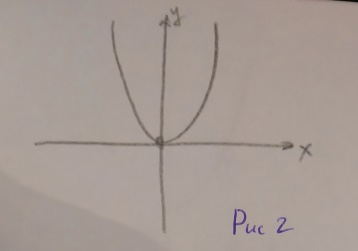 y
x
Рис 2